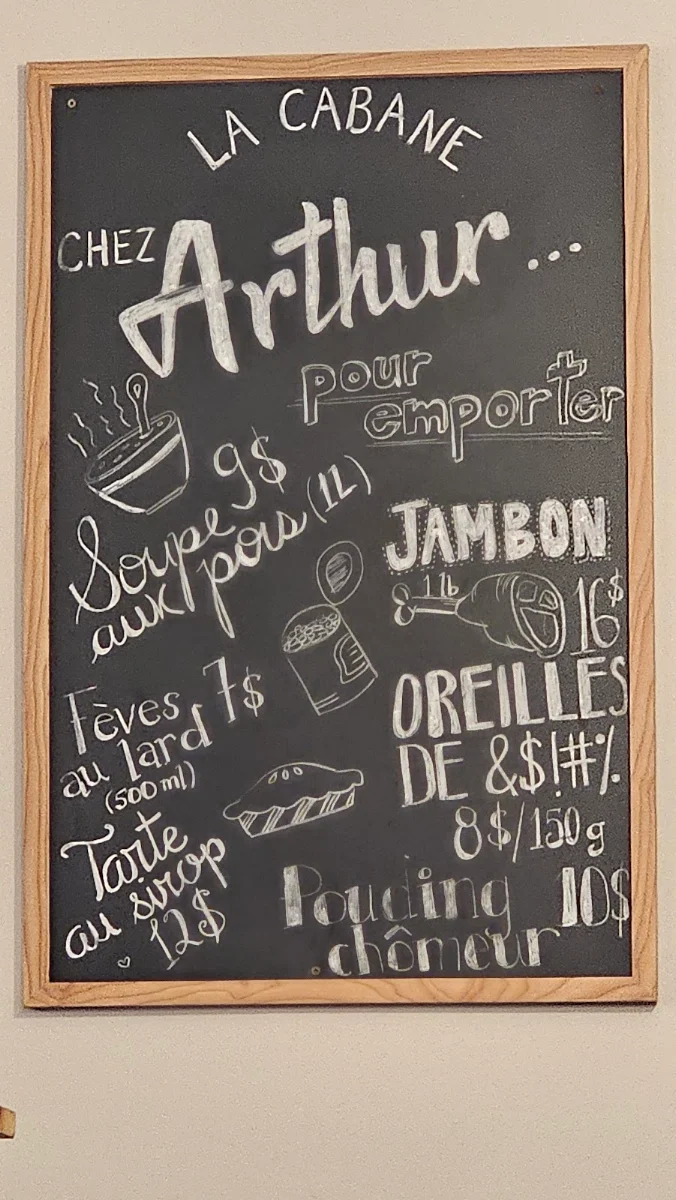 LA CABANE
CHEZ Arthur...
pour
emporter
Soupe 9$
aux pois (1L)
Fèves 7$
au lard
(500 ml)
Tarte
au sirop
12$
JAMBON
1 lb 16$
OREILLES
DE &$!#%
8$/150g
Pouding 10$
chômeur